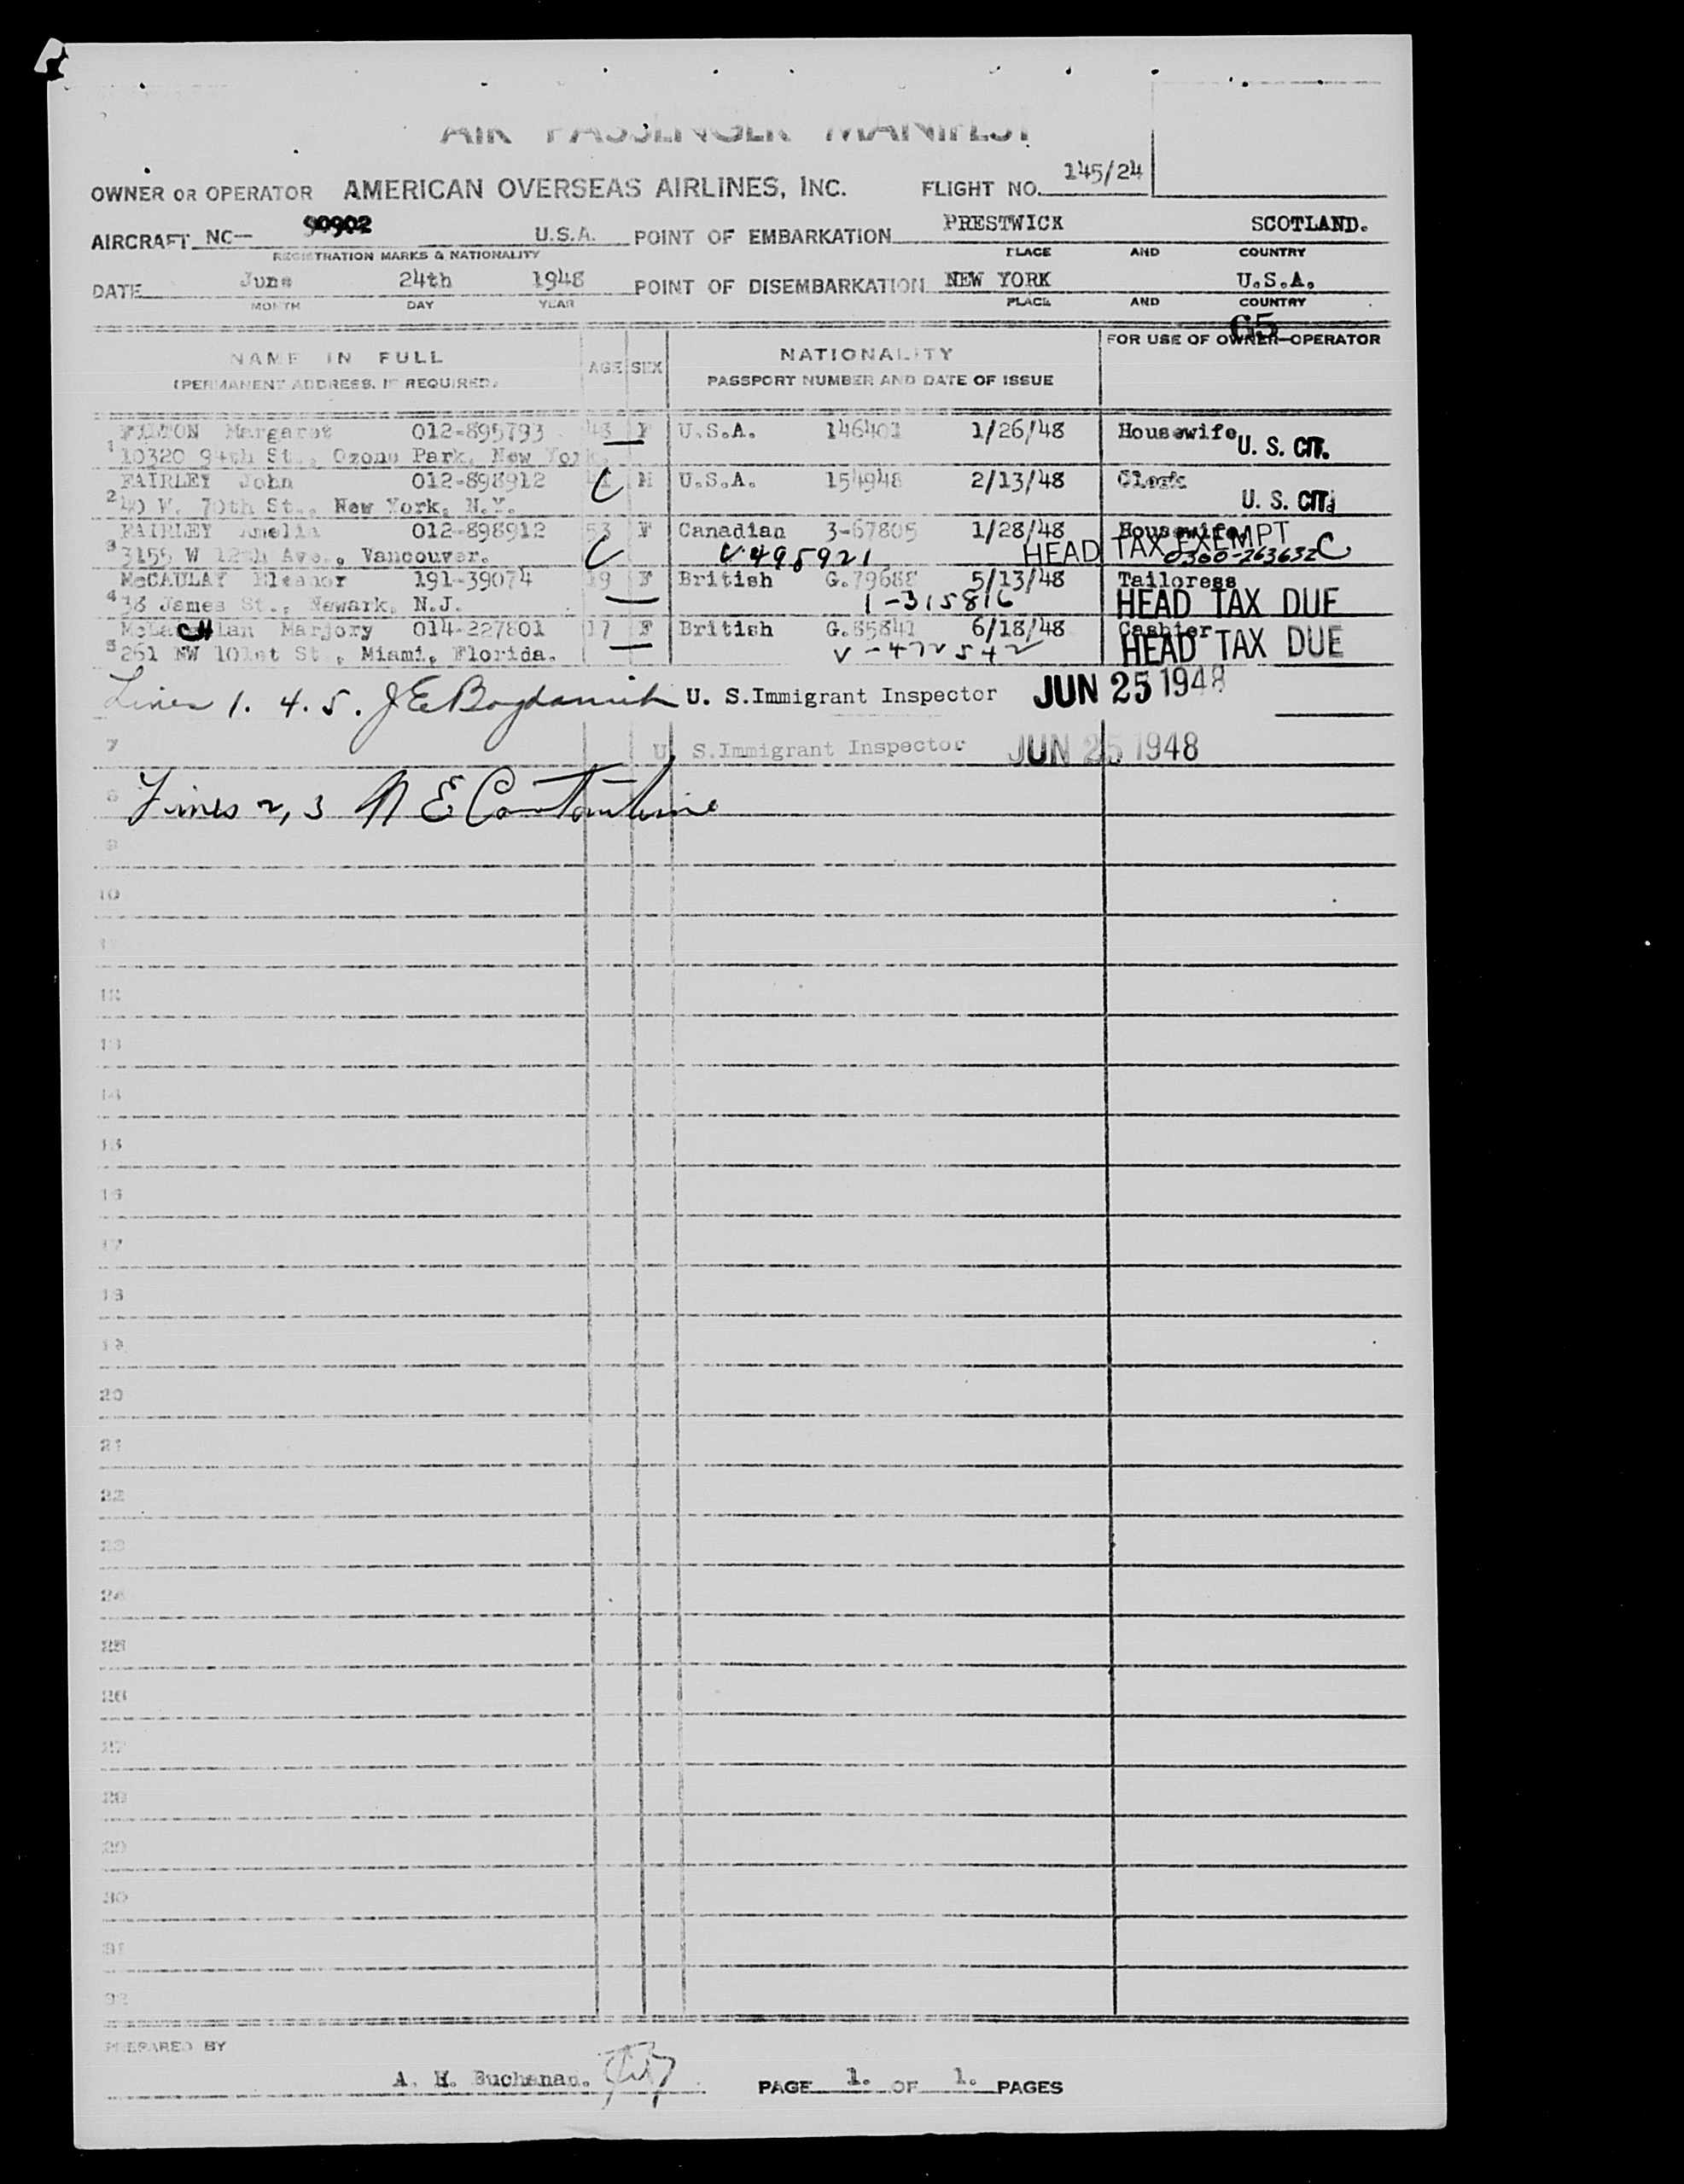 AIR PASSENGER MANIFEST
OWNER OR OPERATOR AMERICAN OVERSEAS AIRLINES, INC. FLIGHT NO. 145/24
AIRCRAFT NC— 90902 U.S.A. POINT OF EMBARKATION PRESTWICK SCOTLAND.
REGISTRATION MARKS & NATIONALITY PLACE AND COUNTRY
DATE June 24th 1948 POINT OF DISEMBARKATION NEW YORK U.S.A.
MONTH DAY YEAR PLACE AND COUNTRY
G5
NAME IN FULL AGE SEX NATIONALITY FOR USE OF OWNER—OPERATOR
(PERMANENT ADDRESS, IF REQUIRED) PASSPORT NUMBER AND DATE OF ISSUE
1 Margaret 012-895793 43 F U.S.A. 146401 1/26/48 Housewife U. S. CIT.
10320 94th St., Ozone Park, New York.
2 FAIRLEY John 012-898912 M U.S.A. 154948 2/13/48 Clerk
40 W. 70th St., New York, N.Y. U. S. CIT.
3 FAIRLEY Amelia 012-898912 53 F Canadian 3-67805 1/28/48 Housewife
3155 W 12th Ave., Vancouver. V 495921 HEAD TAX EXEMPT 0300-263632 C
4 McCAULAY Eleanor 191-39074 19 F British G.79688 5/13/48 Tailoress
38 James St., Newark, N.J. 1-315816 HEAD TAX DUE
5 McLaCHlan Marjory 014-227801 17 F British G.85841 6/18/48 Cashier
261 NW 101st St., Miami, Florida. V-472542 HEAD TAX DUE
Lines 1. 4. 5. U. S.Immigrant Inspector JUN 25 1948
7 U. S.Immigrant Inspector JUN 25 1948
8 Lines 2, 3 N E Constantine
9
10
11
12
13
14
15
16
17
18
19
20
21
22
23
24
25
26
27
28
29
30
31
32
PREPARED BY
A. H. Buchanan. PAGE 1. OF 1. PAGES